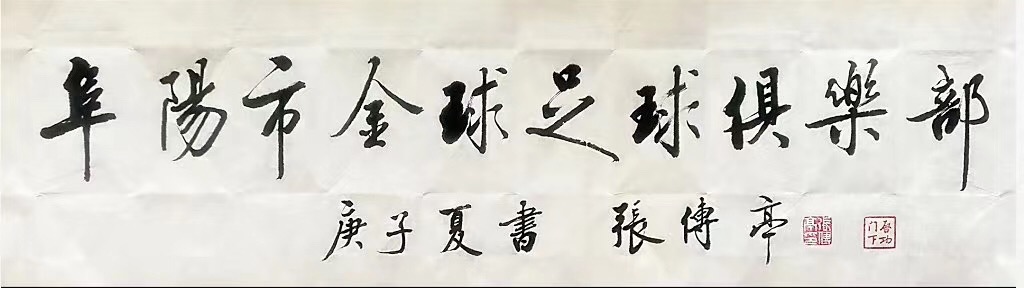 阜陽市金球足球俱樂部
庚子夏書 張傳亭
啓功门下